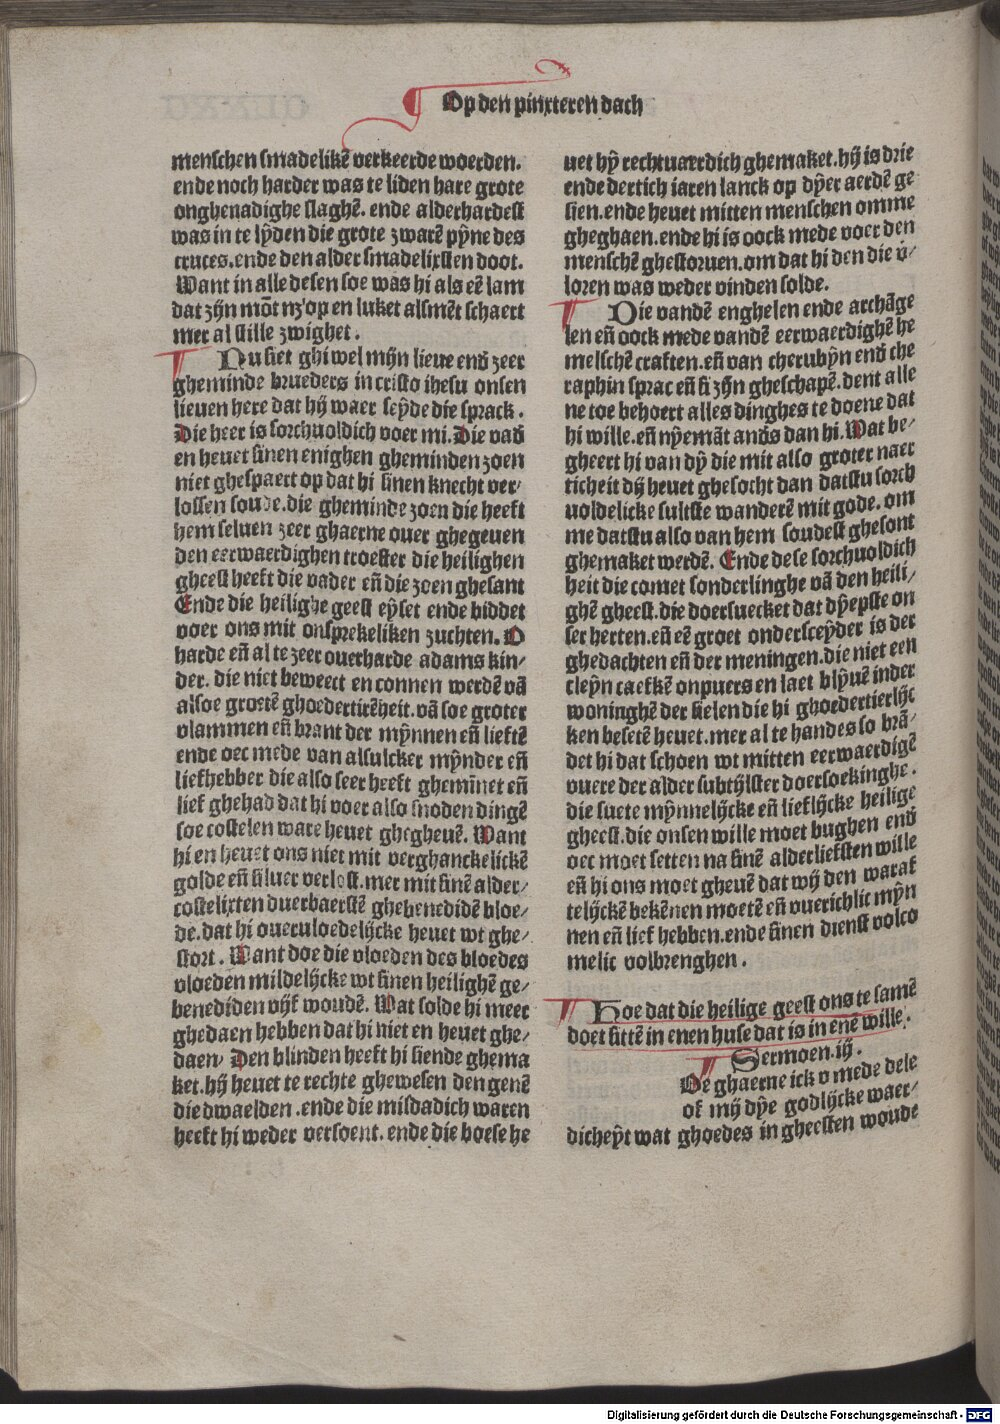 Op den pinxteren dach
menschen smadelikē verkeerde woerden.
ende noch harder was te liden hare grote
onghenadighe slaghē. ende alderhardest
was in te lÿden die grote zwarē pÿne des
cruces.ende den alder smadelixsten doot.
Want in alle desen soe was hi als eē lam
dat zÿn mōt nz' op en luket alsmēt schaert
mer al stille zwighet.
Nu siet ghi wel mÿn lieue end̄ zeer
gheminde brueders in cristo ihesu onsen
lieuen here dat hÿ waer seÿde die sprack.
Die heer is sorchuoldich voer mi. Die vad̄
en heuet sinen enighen gheminden zoen
niet ghespaert op dat hi sinen knecht ver/
lossen soude.die gheminde zoen die heeft
hem seluen zeer ghaerne ouer ghegeuen
den eerwaerdighen troester die heilighen
gheest heeft die vader en̄ die zoen ghesant
Ende die heilighe geest eÿset ende biddet
voer ons mit onsprekeliken zuchten. O
harde en̄ al te zeer ouerharde adams kin/
der. die niet beweect en connen werdē vā
alsoe groetē ghoedertirēheit.vā soe groter
vlammen en̄ brant der mÿnnen en̄ lieftē
ende oec mede van alsulcker mÿnder en̄
liefhebber die also seer heeft ghemīnet en̄
lief ghehad dat hi voer also snoden dingē
soe costelen ware heuet ghegheuē. Want
hi en heuet ons niet mit verghanckelickē
golde en̄ siluer verlost.mer mit sinē alder/
costelixten duerbaerstē ghebenedidē bloe/
de.dat hi oueruloedelÿcke heuet wt ghe/
stort. Want doe die vloeden des bloedes
vloeden mildelÿcke wt sinen heilighē ge/
benediden vÿf woudē. Wat solde hi meer
ghedaen hebben dat hi niet en heuet ghe/
daen/ Den blinden heeft hi siende ghema
ket.hÿ heuet te rechte ghewesen den genē
die dwaelden.ende die misdadich waren
heeft hi weder versoent.ende die boese he
uet hÿ rechtuaerdich ghemaket.hÿ is drie
ende dertich iaren lanck op dÿer aerdē ge
sien.ende heuet mitten menschen omme
gheghaen.ende hi is oock mede voer den
menschē ghestoruen.om dat hi den die v̄/
loren was weder vinden solde.
Die vandē enghelen ende archāge
len en̄ oock mede vandē eerwaerdighē he
melschē craften.en̄ van cherubÿn end̄ che
raphin sprac en̄ si zÿn gheschapē.dent alle
ne toe behoert alles dinghes te doene dat
hi wille.en̄ nÿemāt and̄s dan hi. Wat be/
gheert hi van dÿ die mit also groter naer
ticheit dÿ heuet ghesocht dan datstu sorch
uoldelicke sultste wanderē mit gode. om
me datstu also van hem soudest ghesont
ghemaket werdē. Ende dese sorchuoldich
heit die comet sonderlinghe vā den heili/
ghē gheest.die doersuecket dat dÿepste on
ser herten.en̄ eē groet ondersceÿder is der
ghedachten en̄ der meningen.die niet een
cleÿn caefkē onpuers en laet blÿuē inder
woninghē der sielen die hi ghoedertierlÿc
ken besetē heuet.mer al te handes so brā/
det hi dat schoen wt mitten eerwaerdigē
vuere der alder subtÿlster doersoekinghe.
die suete mÿnnelÿcke en̄ lieflÿcke heilige
gheest.die onsen wille moet bughen end̄
oec moet setten na sinē alderliefsten wille
en̄ hi ons moet gheuē dat wÿ den waraf
telÿckē bekēnen moetē en̄ vuerichlic mÿn
nen en̄ lief hebben.ende sinen dienst volco
melic volbrenghen.
Hoe dat die heilige geest ons te samē
doet sittē in enen huse dat is in enē wille.
Sermoen.iÿ.
Oe ghaerne ick v mede dele
of mÿ dÿe godlÿcke waer/
dicheÿt wat ghoedes in gheesten woude
Digitalisierung gefördert durch die Deutsche Forschungsgemeinschaft - DFG